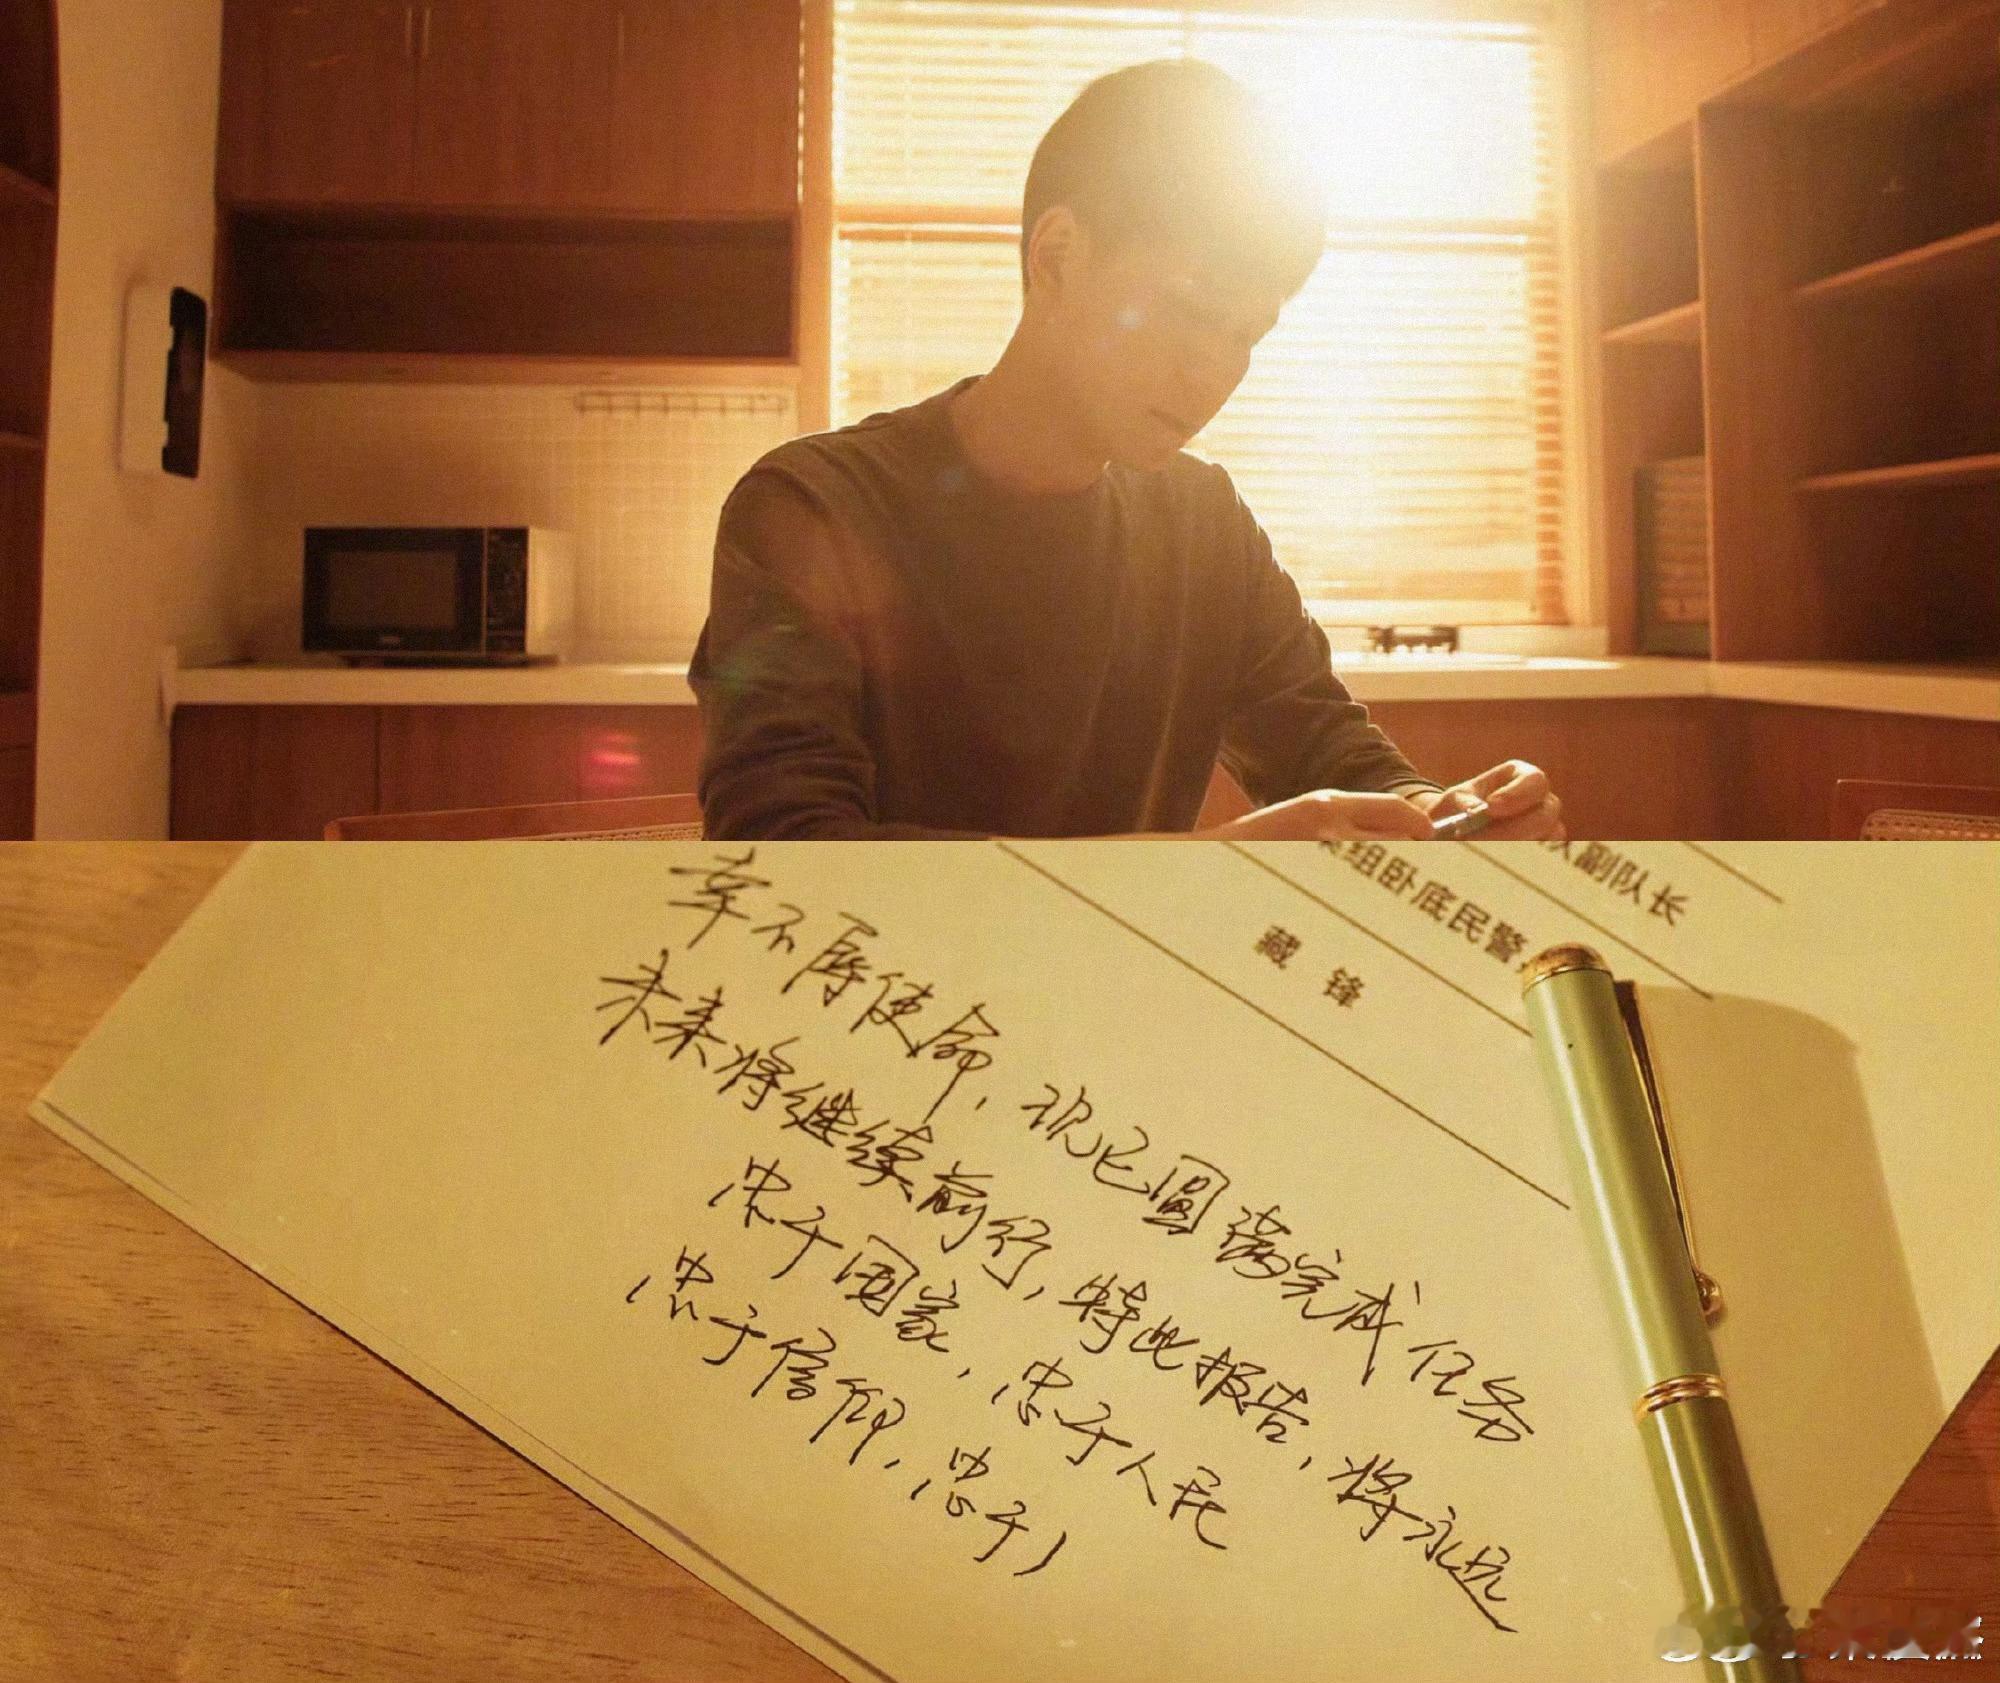 队副队长
组卧底民警
藏 锋
幸不辱使命，现已圆满完成任务
未来将继续前行，特此报告，将永远
忠于国家，忠于人民
忠于信仰，忠于